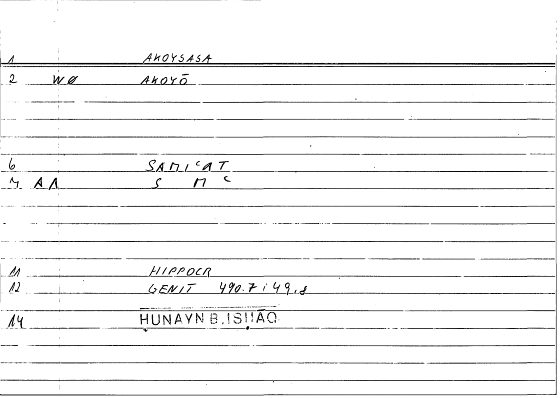 1 AKOYSASA
2 WØ AKOYŌ
6 SAMIʿAT
7. AΛ S M ʿ
11 HIPPOCR
12 GENIT 490.7; 49,8
14 ḤUNAYN B.ISḤĀQ